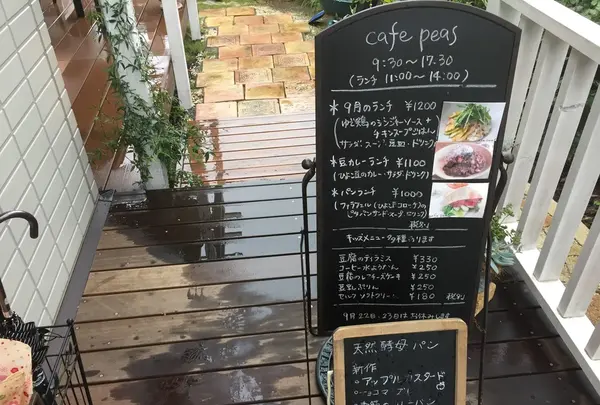 cafe peas
9:30~17:30
(ランチ 11:00~14:00)
*9月のランチ ¥1200
(ゆで鶏のジンジャーソース+
チキンスープごはん
サラダ・スープ・豆皿・ドリンク)
*豆カレーランチ ¥1100
(ひよこ豆のカレー・サラダ・ドリンク)
*パンランチ ¥1000
(ファラフェル(ひよこ豆コロッケ)の
ピタパンサンド・スープ・ドリンク)
税込
キッズメニュー多種あります
豆腐のティラミス ¥330
コーヒー水ようかん ¥250
豆腐のレアチーズケーキ ¥250
豆乳ぷりん ¥250
セルフソフトクリーム ¥180 税込
9月22日、23日はお休みします
天然酵母パン
新作
・アップルカスタード